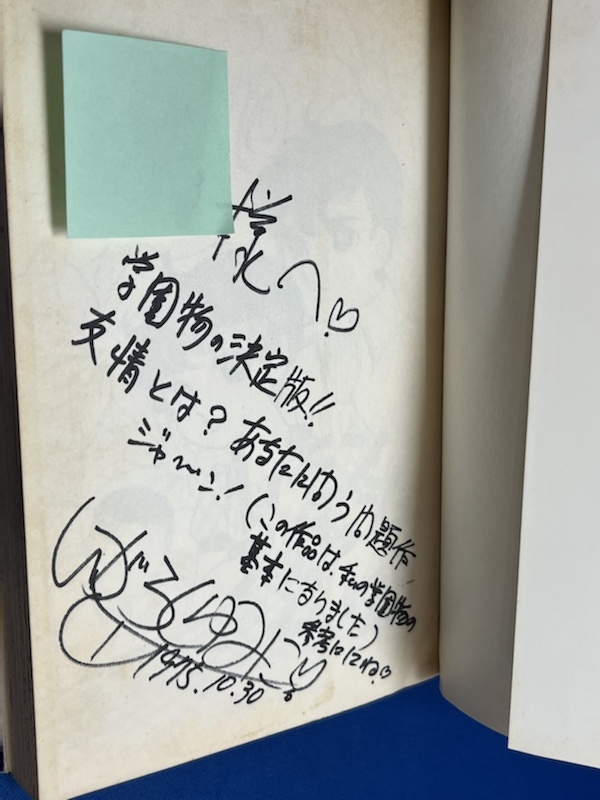 様へ♡
学園物の決定版!!
友情とは? あなたに問う問題作
ジャ〜ン! (この作品は、私の学園物の
基本になりました)
参考にしてね♡
いがらしゆみこ
1975.10.30